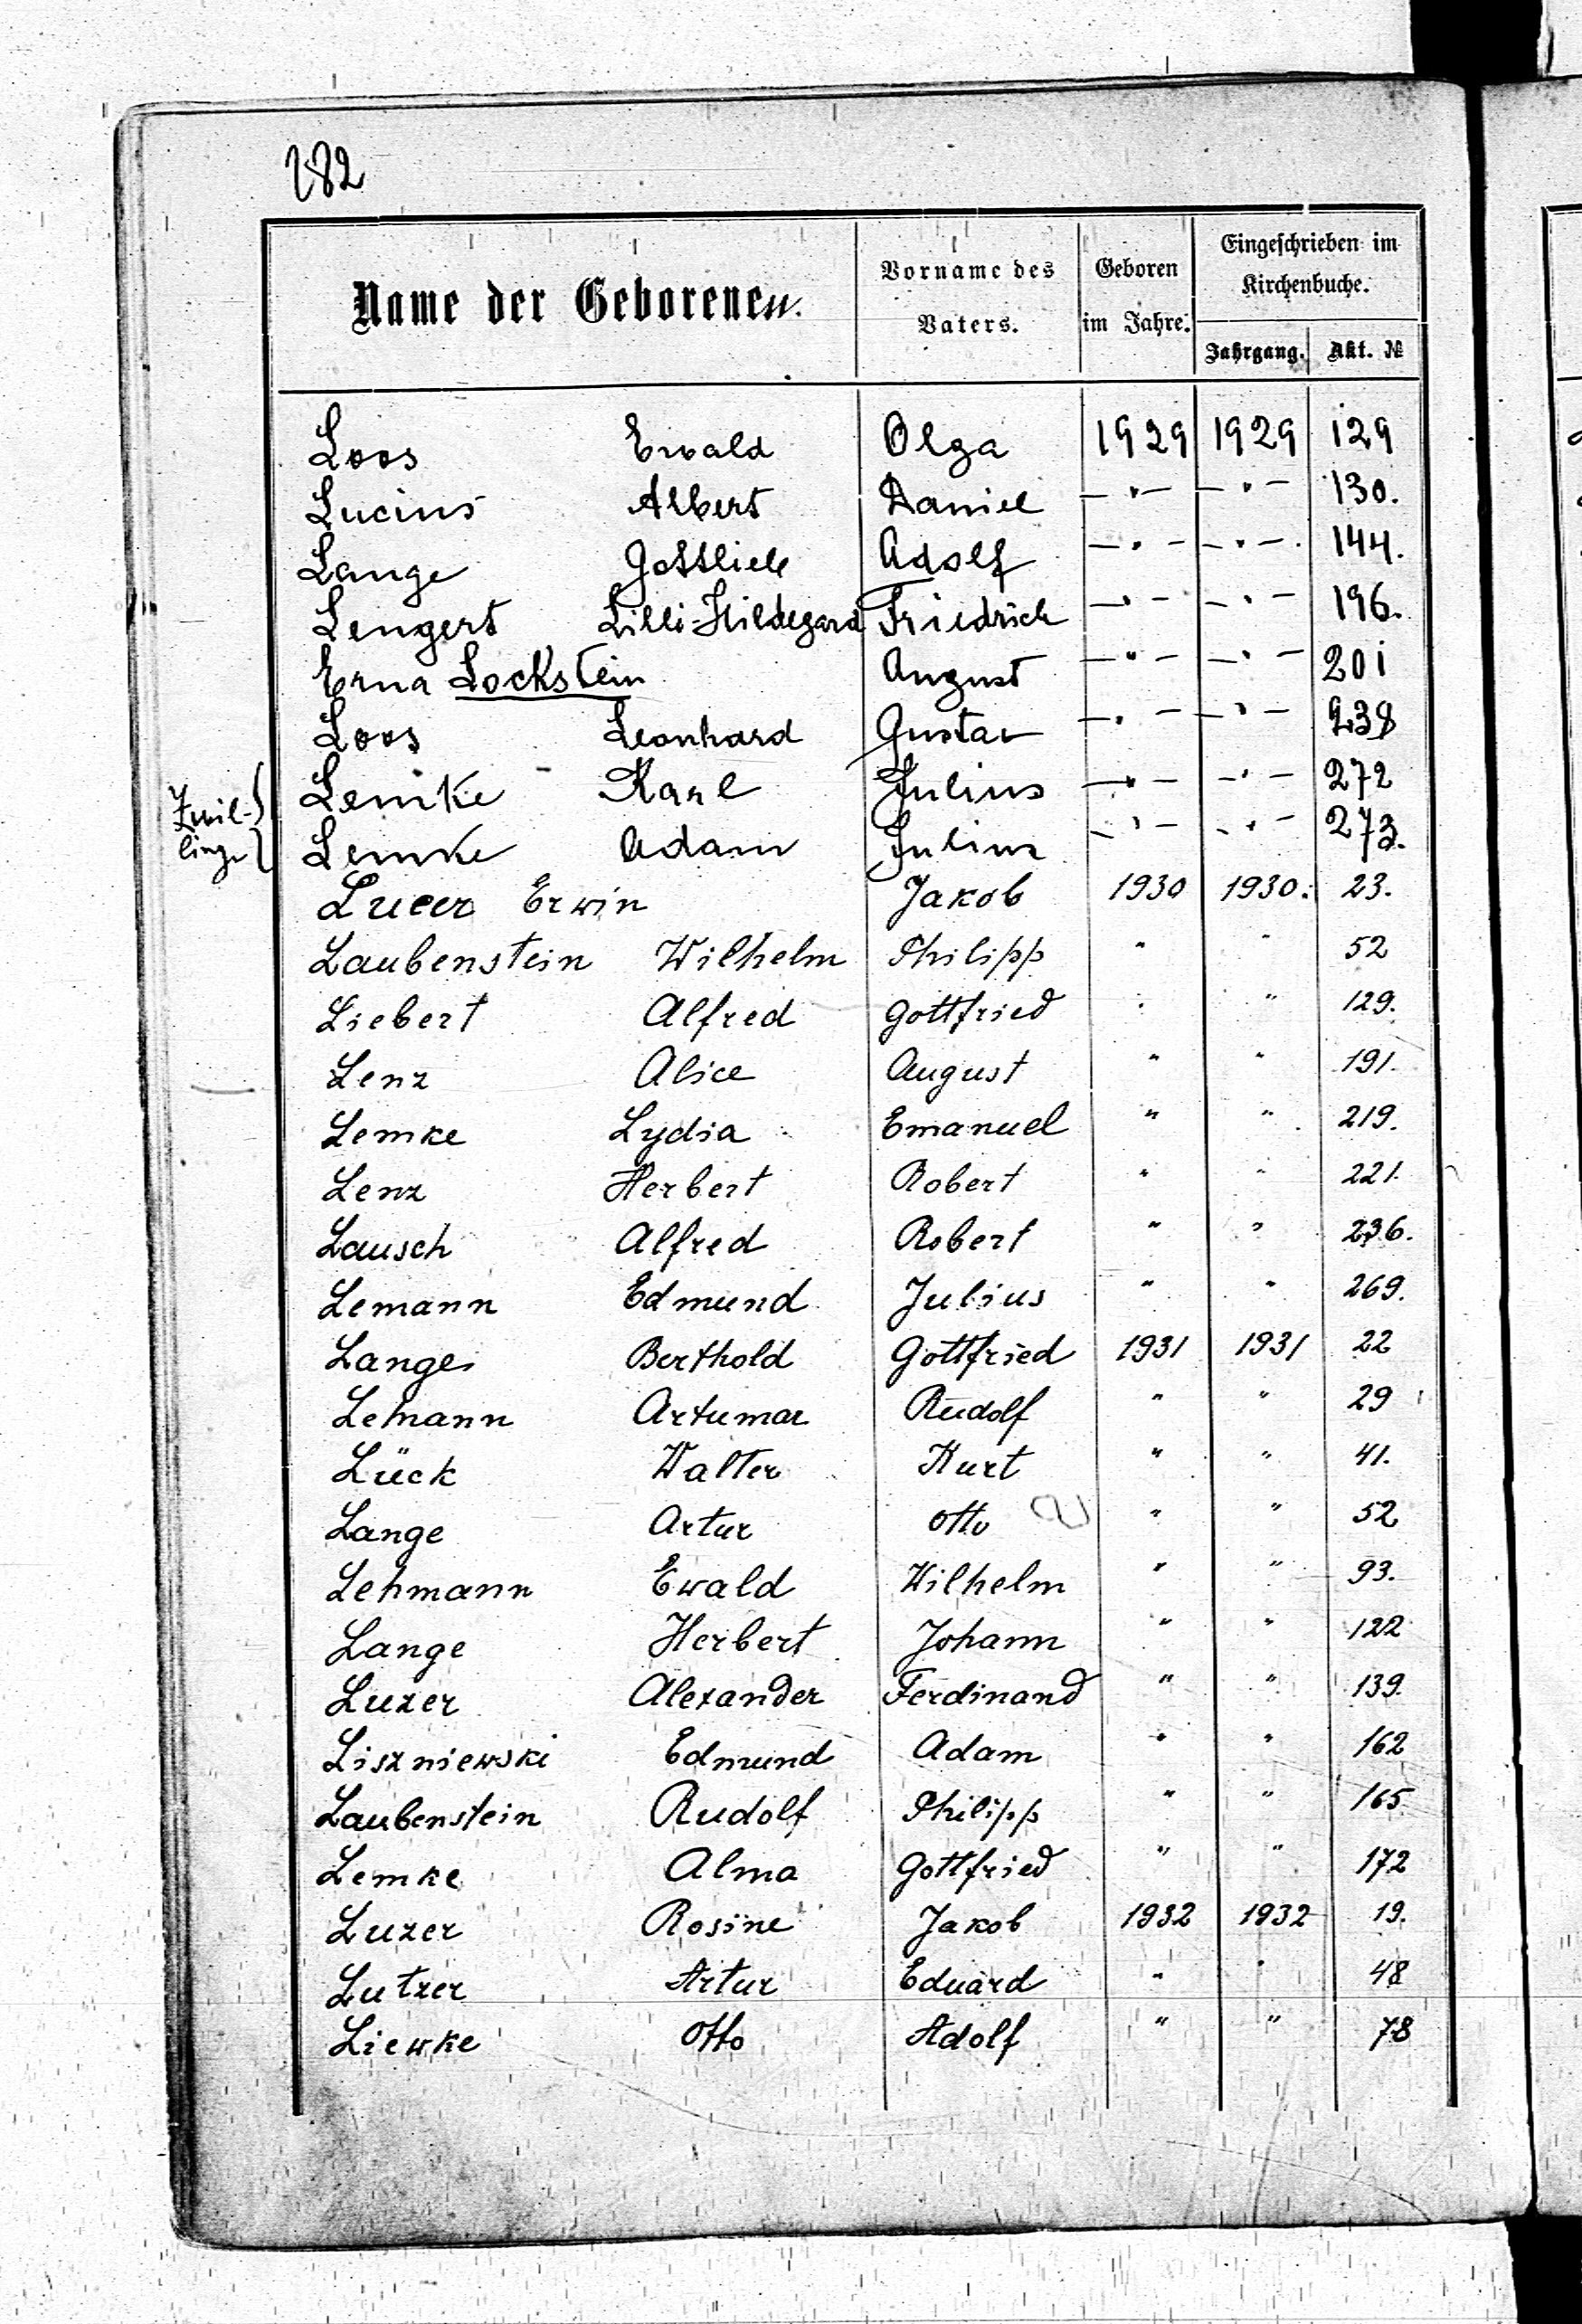 182
Name der Geborenen.
Vorname des Vaters.
Geboren im Jahre.
Eingeschrieben im Kirchenbuche.
Jahrgang. Akt. №
Loos Ewald Olga 1929 1929 129
Lucius Albert Daniel —"— —"— 130.
Lange Gottlieb Adolf —"— —"— 144.
Lengert Lilli-Hildegard Friedrich —"— —"— 196.
Erna Lockstein August —"— —"— 201
Loos Leonhard Gustav —"— —"— 238
Zwil-
linge
Lemke Karl Julius —"— —"— 272
Lemke Adam Julius —"— —"— 273.
Lucer Erwin Jakob 1930 1930. 23.
Laubenstein Wilhelm Philipp " " 52
Liebert Alfred Gottfried " " 129.
Lenz Alice August " " 191.
Lemke Lydia Emanuel " " 219.
Lenz Herbert Robert " " 221.
Lausch Alfred Robert " " 236.
Lemann Edmund Julius " " 269.
Lange Berthold Gottfried 1931 1931 22
Lemann Artumar Rudolf " " 29
Lück Walter Kurt " " 41.
Lange Artur Otto " " 52
Lehmann Ewald Wilhelm " " 93.
Lange Herbert Johann " " 122
Luzer Alexander Ferdinand " " 139.
Liszniewski Edmund Adam " " 162
Laubenstein Rudolf Philipp " " 165
Lemke Alma Gottfried " " 172
Luzer Rosine Jakob 1932 1932 19.
Lutzer Artur Eduard " " 48
Liewke Otto Adolf " " 78